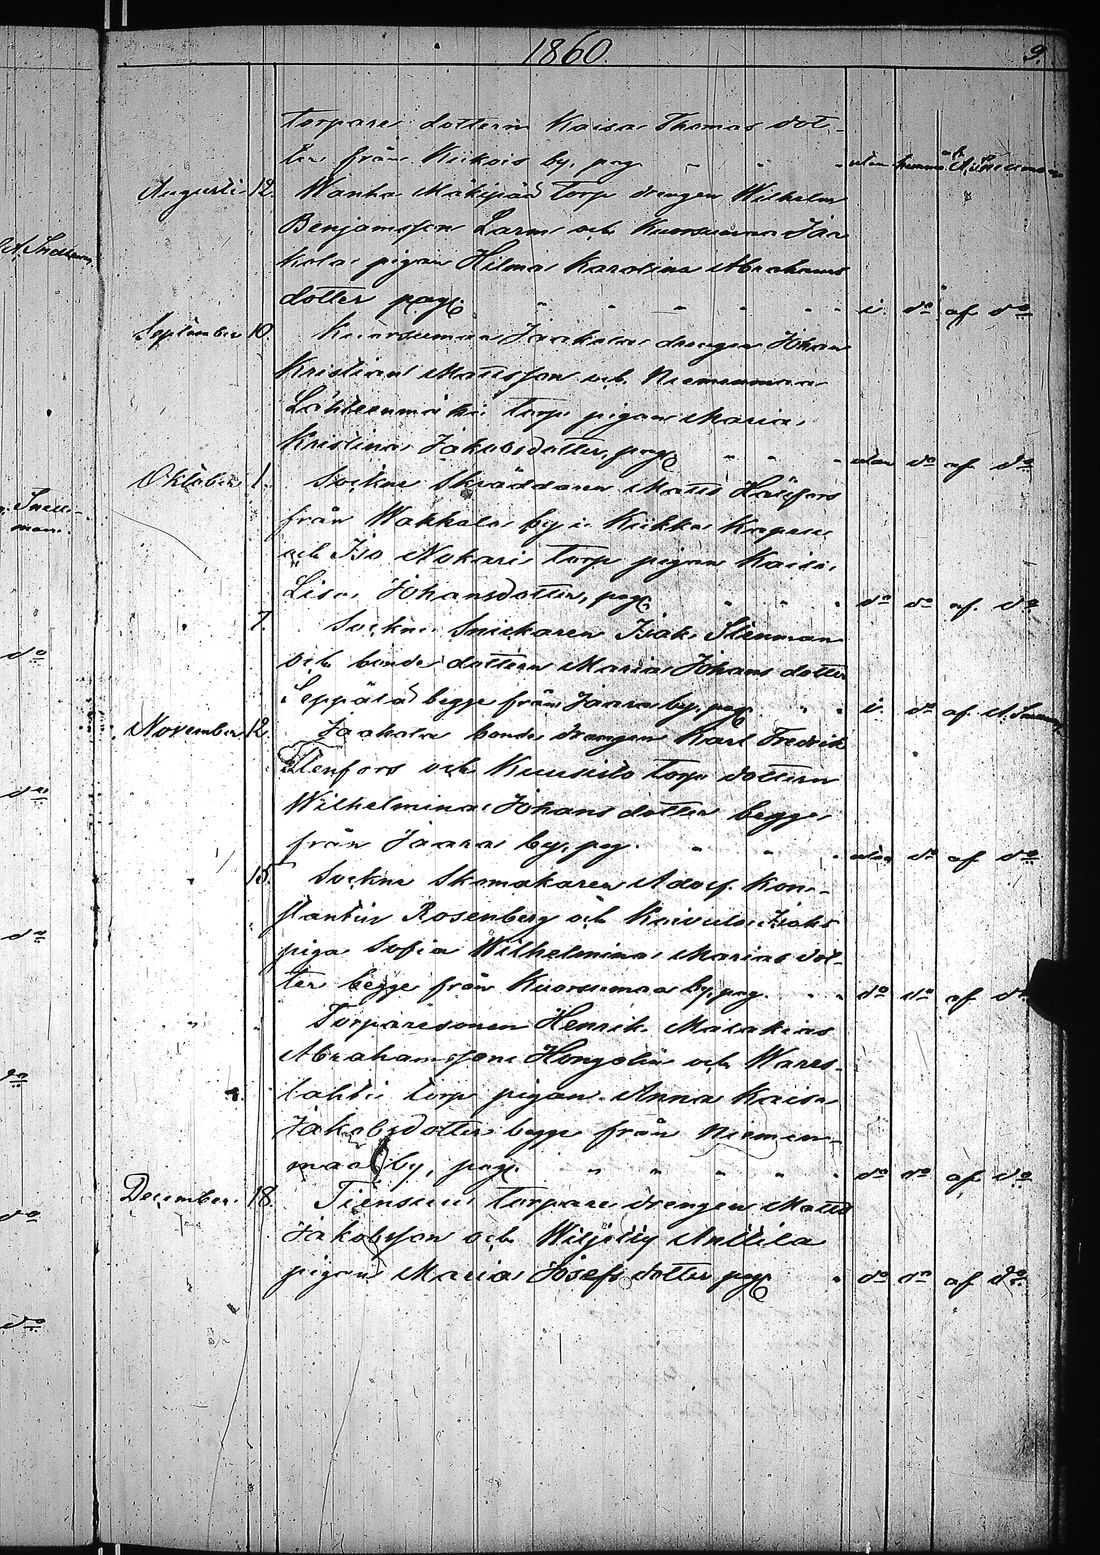 1860.
9.
torpare dottern Kaisa Thomas dot-
ter från Kiikois by, pag - - - utan
Augusti 12. Wanha Mäkipää torp drengen Wilhelm
Benjamsson Larm och Kuorsumaa Jaa
kola pigan Hilma Karolina Abrahams
dotter pag. " " " " " i do af do
September 10. Kuorsumaa Jaakola drengen Johan
Kristian Mattsson och Niemenmaa
Lähteenmäki torp pigan Maria
Kristina Jakobsdotter, pag. " " " utan do af do
Oktober 1. Sockne Skräddaren Matts Hälsfors
från Wakkala by i Kiikka Kapell
och Iso Nokari torp pigan Kaisa
Lisa Johansdotter, pag. " " " do do af do
7. Sockne Snickaren Isak Stenman
och bonde dottern Maria Johans dotter
Seppälä begge från Jaara by, pag. " " i do af
November 12. Jaakola bonde drengen Karl Fredrik
Stenfors och Kuusisto torp dottern
Wilhelmina Johans dotter begge
från Jaara by, pag. " " " utan do af do
15. Sockne Skomakaren Adolf Kon-
stantin Rosenberg och Koivula Isaks
piga Sofia Wilhelmina Marias dot-
ter begge från Kuorsumaa by, pag. " " do do af do
" " Torparesonen Henrik Malakias
Abrahamsson Hongolin och Wares-
lahti torp pigan Anna Kaisa
Jakobsdotter begge från Niemen-
maa by, pag. " " " " " do do af do
December 18. Tiensuu torpare drengen Matts
Jakobsson och Anttila
pigan Maria Josefs dotter pag. " do do af do